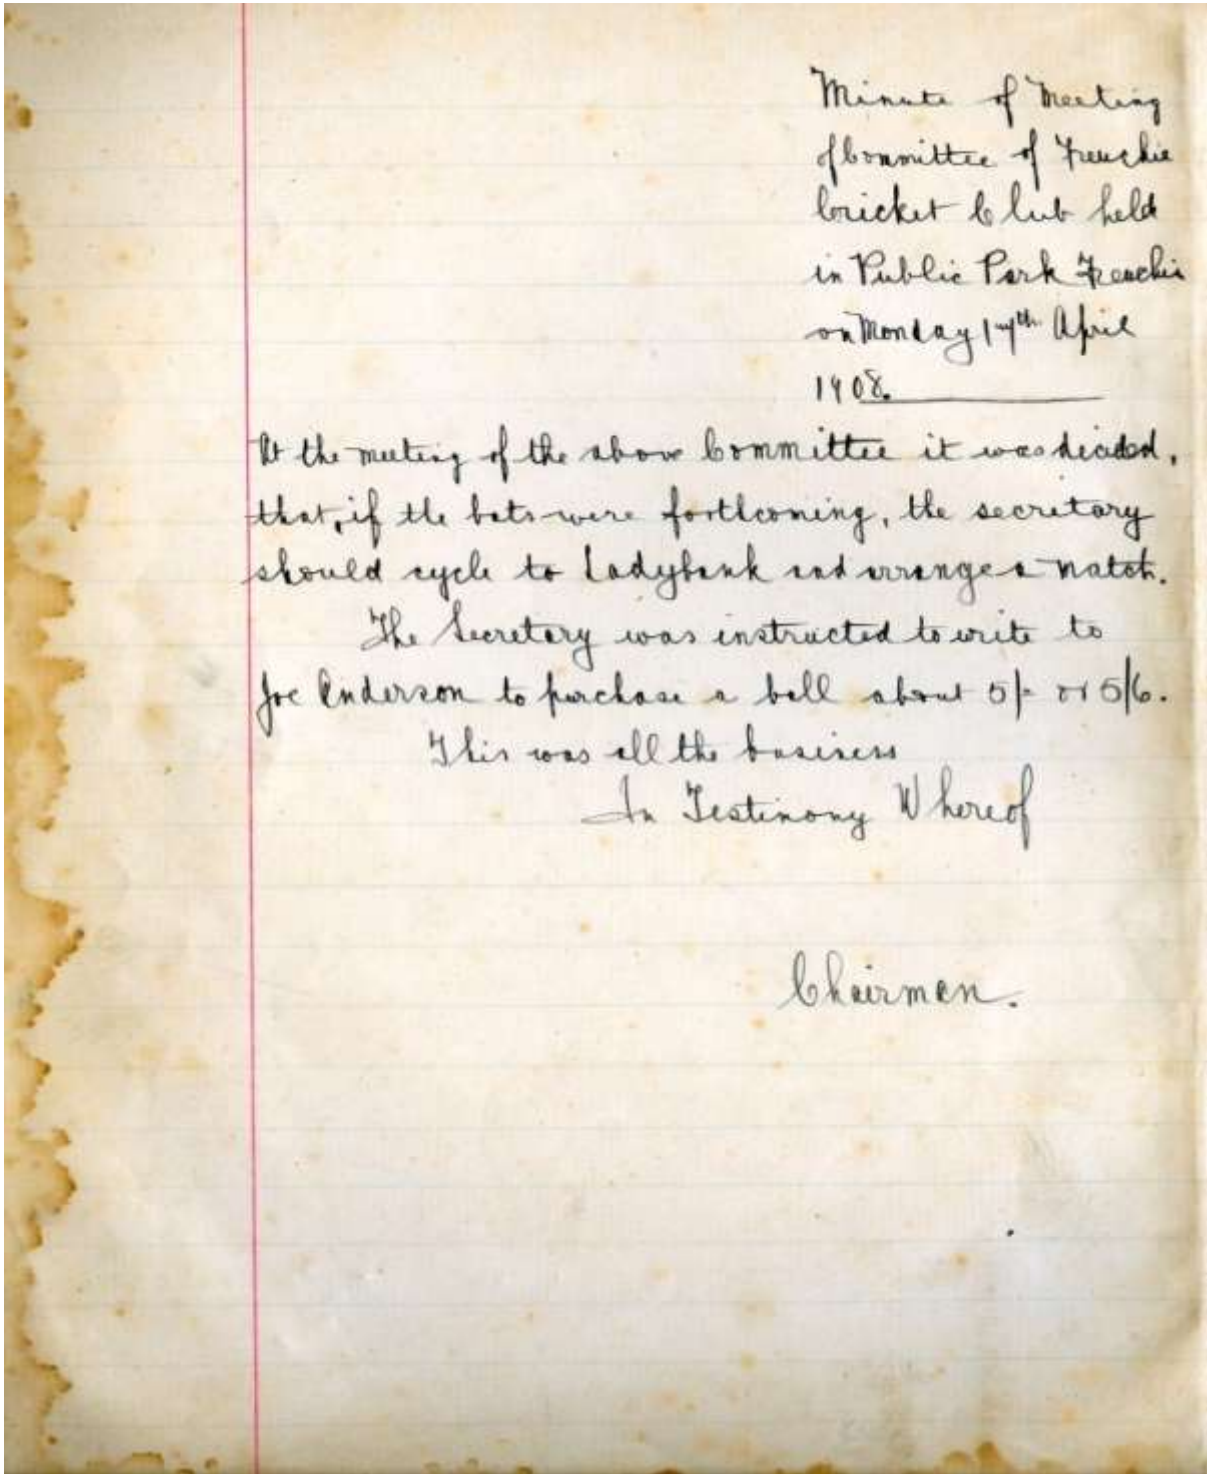 Minute of Meeting
of Committee of Freuchie
Cricket Club held
in Public Park Freuchie
on Monday 17th April
1908.
At the meeting of the above Committee it was decided,
that, if the bats were forthcoming, the secretary
should cycle to Ladybank and arrange a match.
The Secretary was instructed to write to
Joe Anderson to purchase a ball about 5/- or 5/6.
This was all the business
In Testimony Whereof
Chairman.